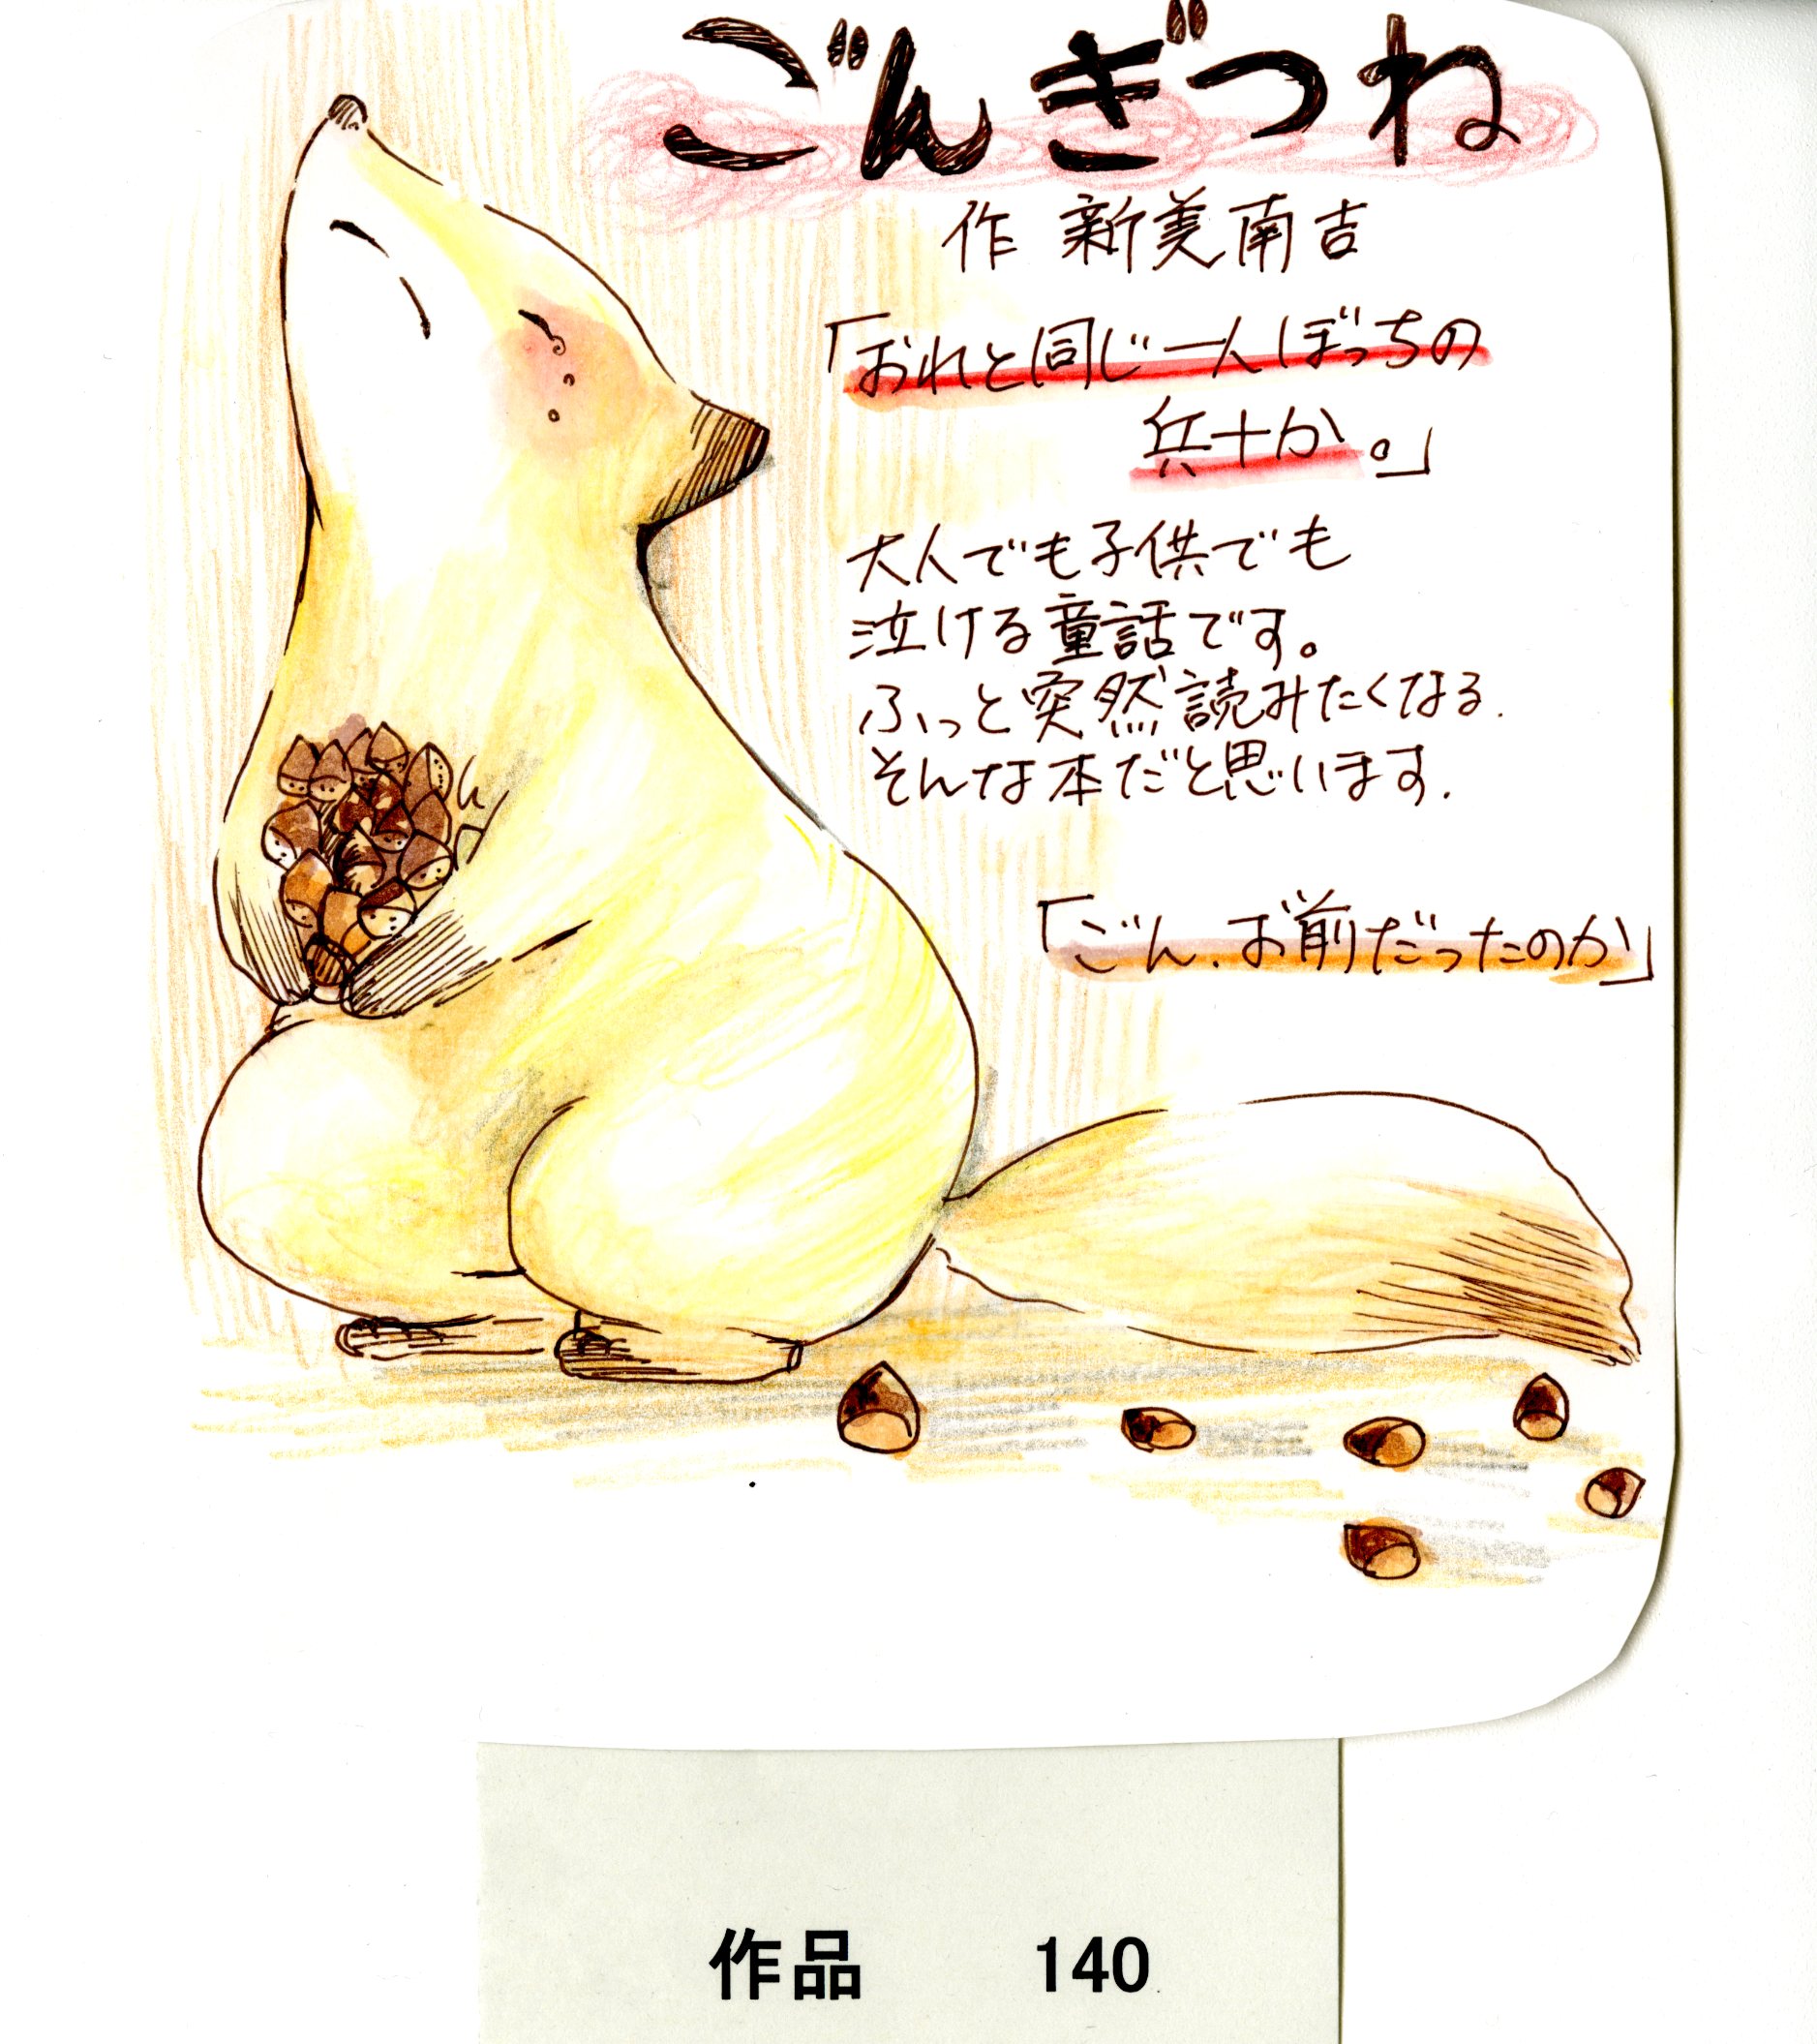 ごんぎつね
作 新美南吉
「おれと同じ一人ぼっちの
兵十か。」
大人でも子供でも
泣ける童話です。
ふっと突然読みたくなる.
そんな本だと思います.
「ごん、お前だったのか」
作品 140